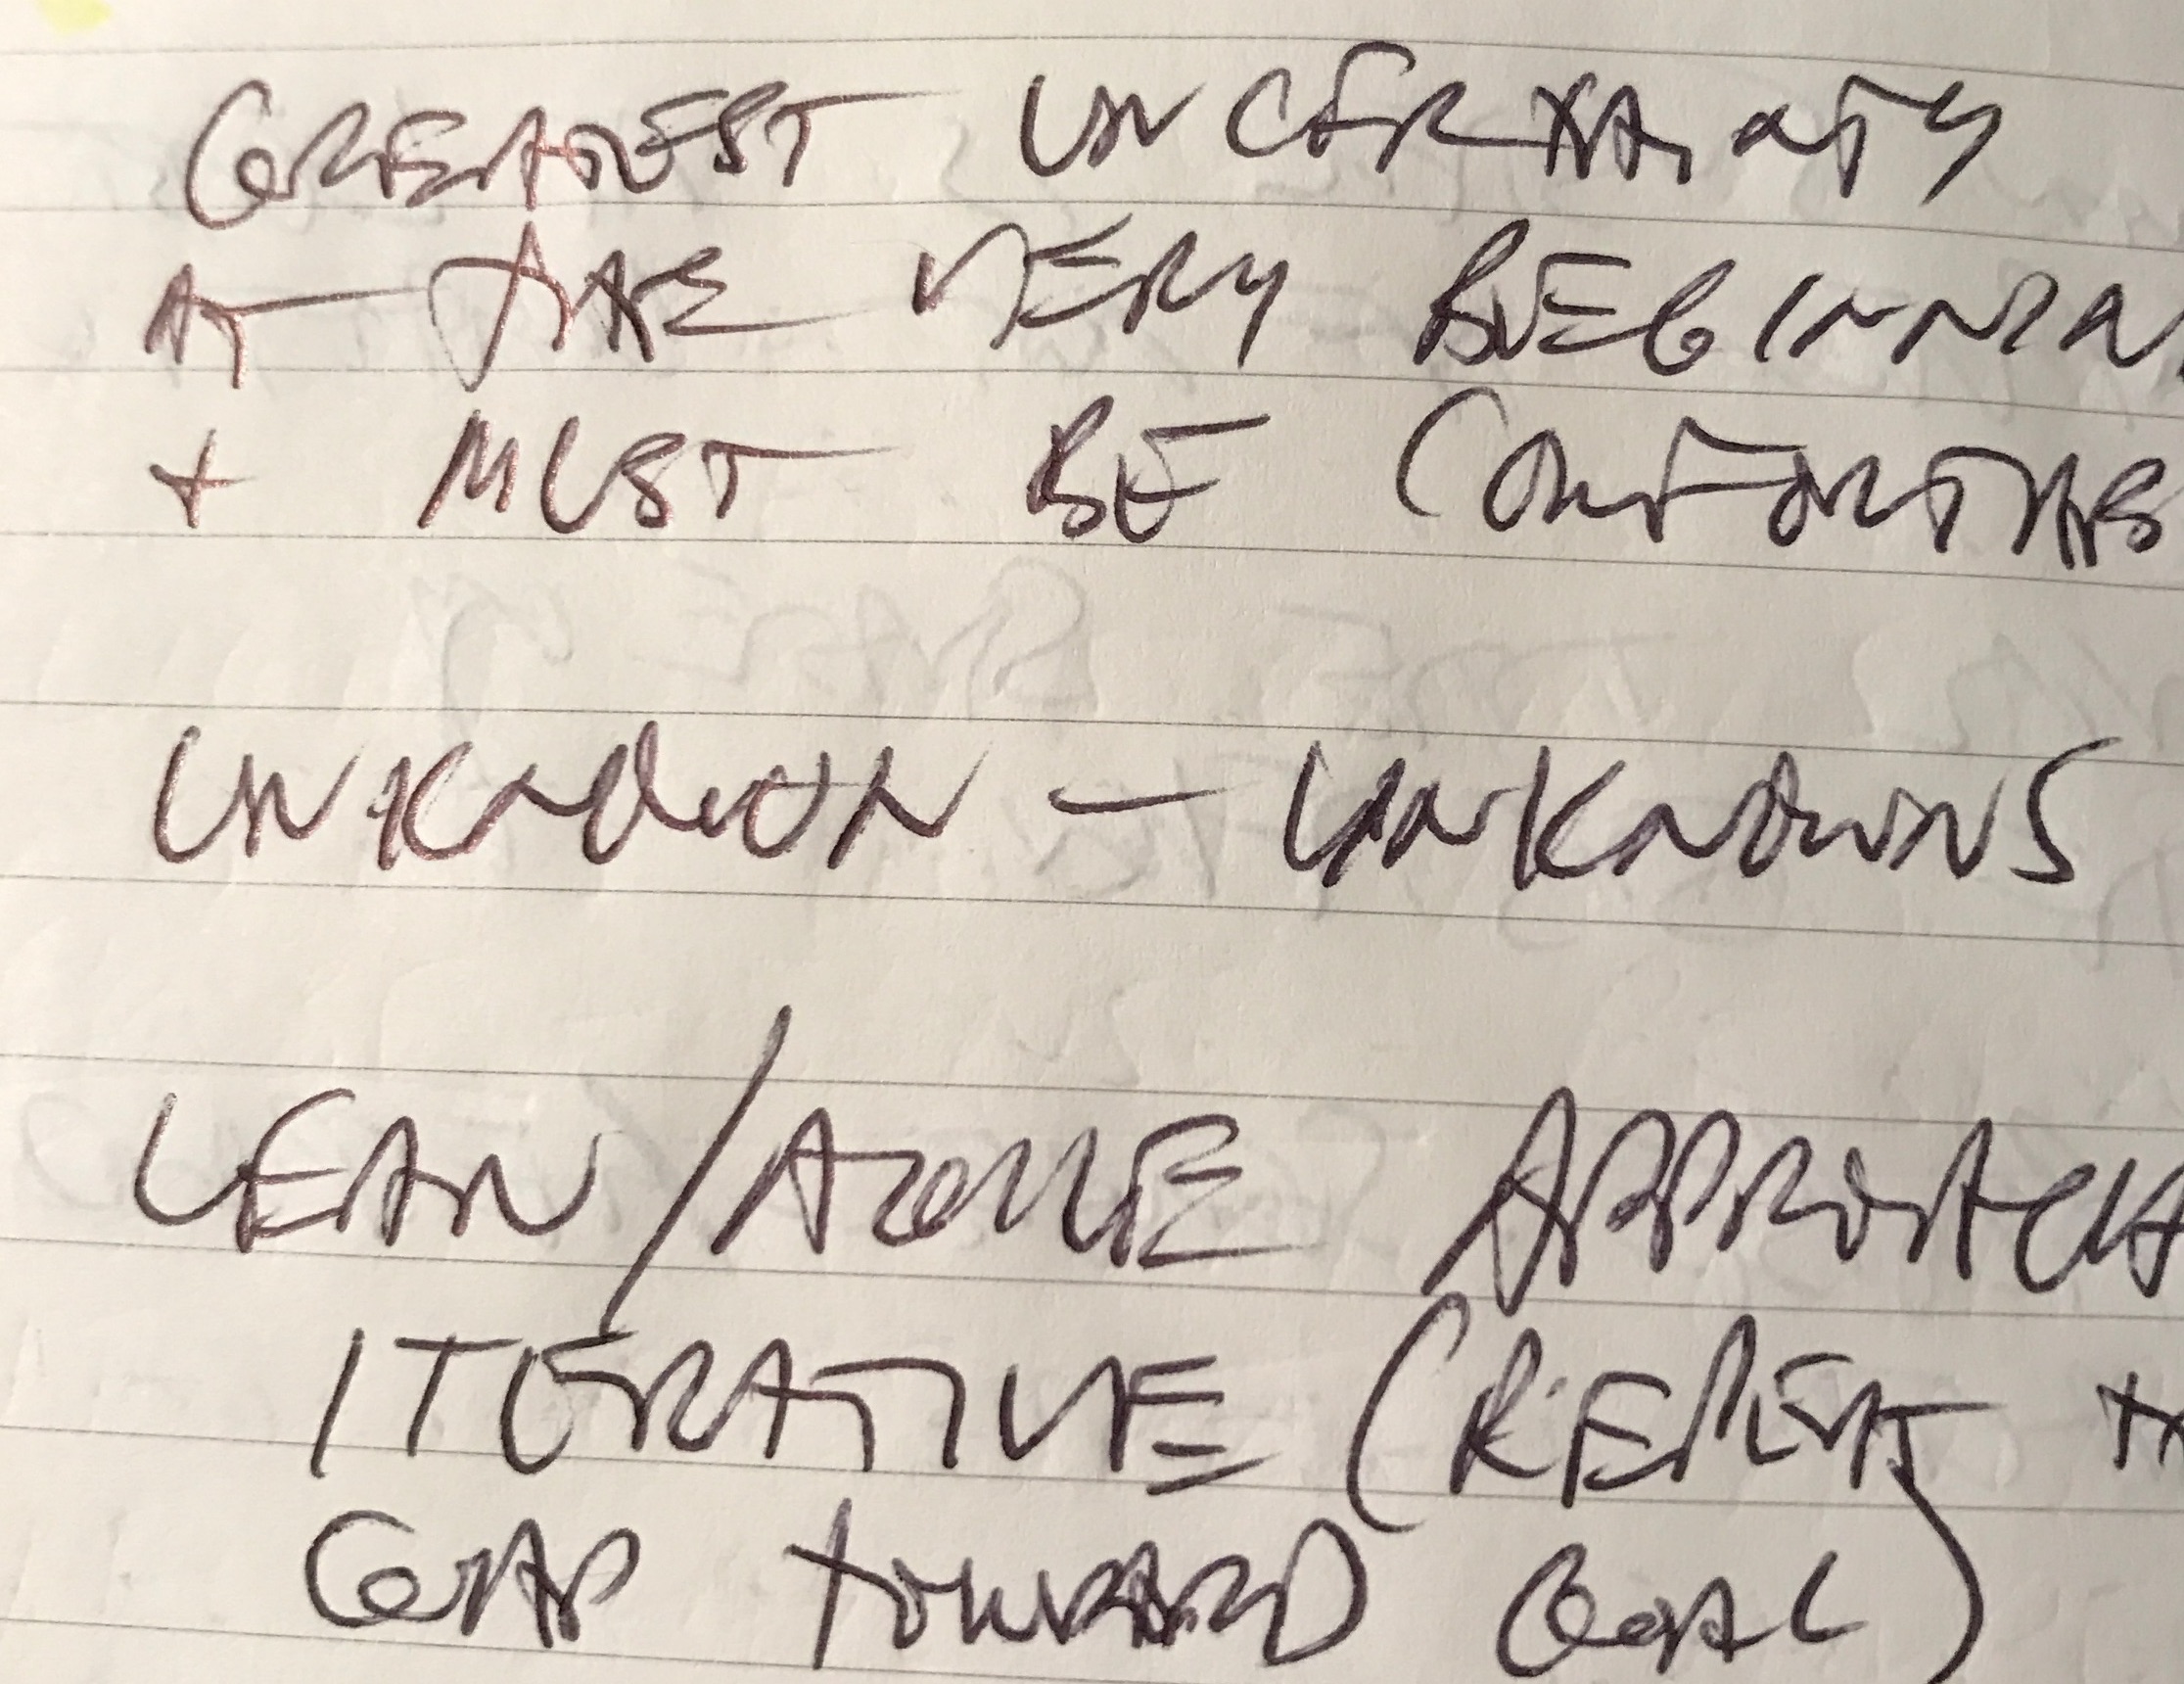 GREATEST UNCERTAINTY
AT THE VERY BEGINNIN
+ MUST BE COMFORTAB
UNKNOWN - UNKNOWNS
LEAN / APPROACH
ITERATIVE (REPEAT
GAP TOWARD GOAL)